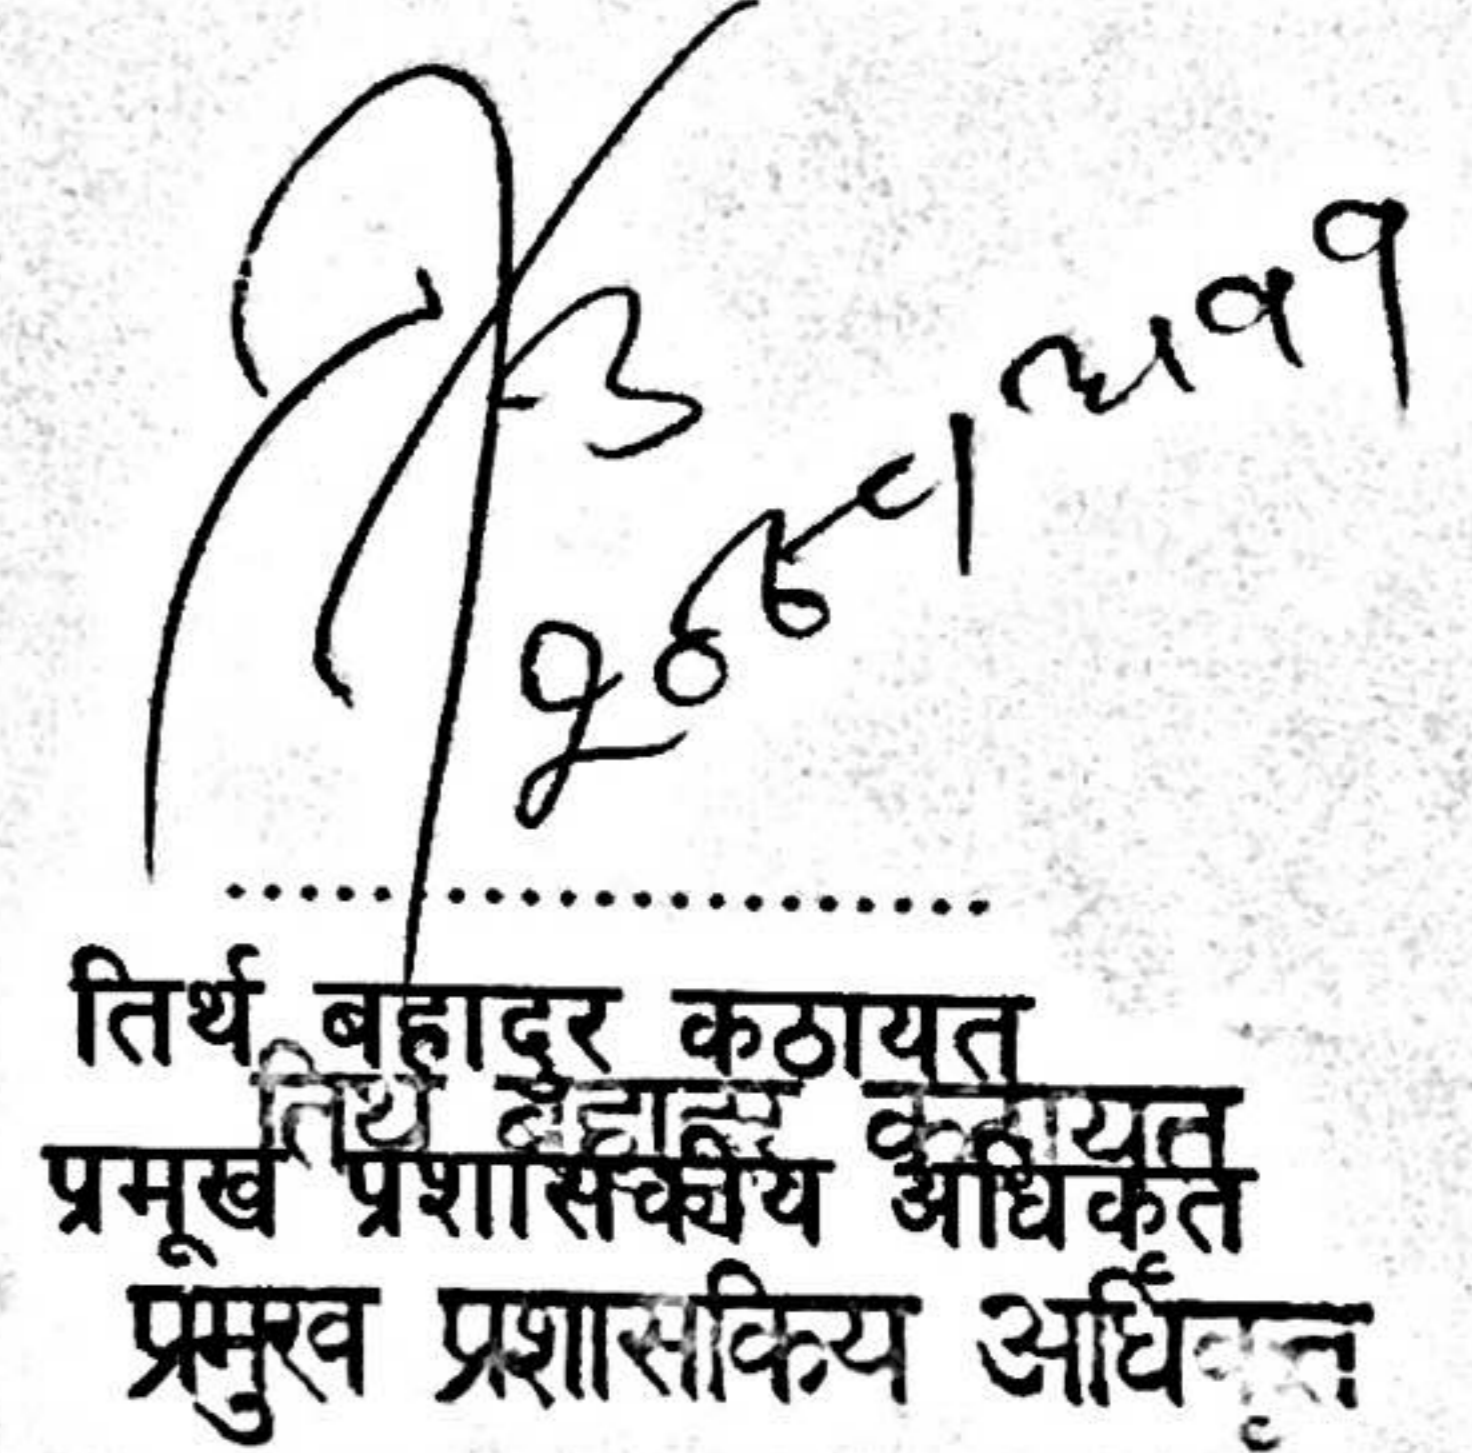 तिर्थ बहादुर कठायत
तिर्थ बहादुर कठायत
प्रमूख प्रशासकीय अधिकृत
प्रमुख प्रशासकिय अधिकृत